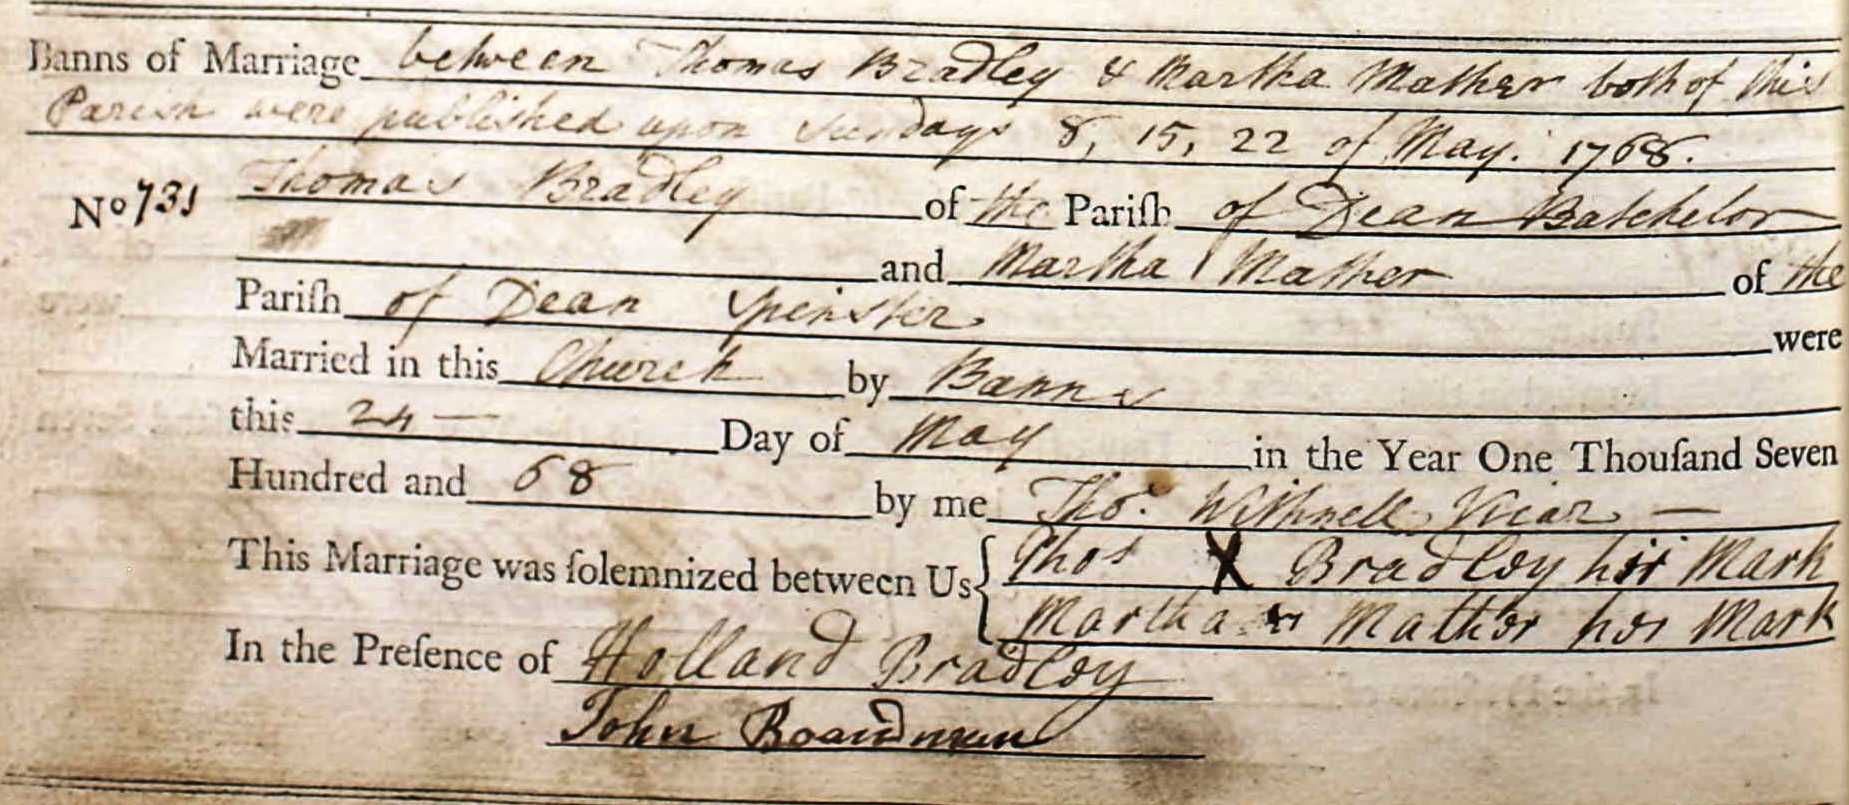 Banns of Marriage between Thomas Bradley & Martha Mather both of this
Parish were published upon Sundays 8, 15, 22 of May. 1768.
No 731 Thomas Bradley of the Pariſh of Dean Batchelor
and Martha Mather of the
Pariſh of Dean Spinster were
Married in this Church by Banns
this 24 — Day of May in the Year One Thouſand Seven
Hundred and 68 by me Tho.s Withnell Vicar —
This Marriage was ſolemnized between Us { Thos X Bradley his Mark
Martha Mather her Mark
In the Preſence of Holland Bradley
John Boardman